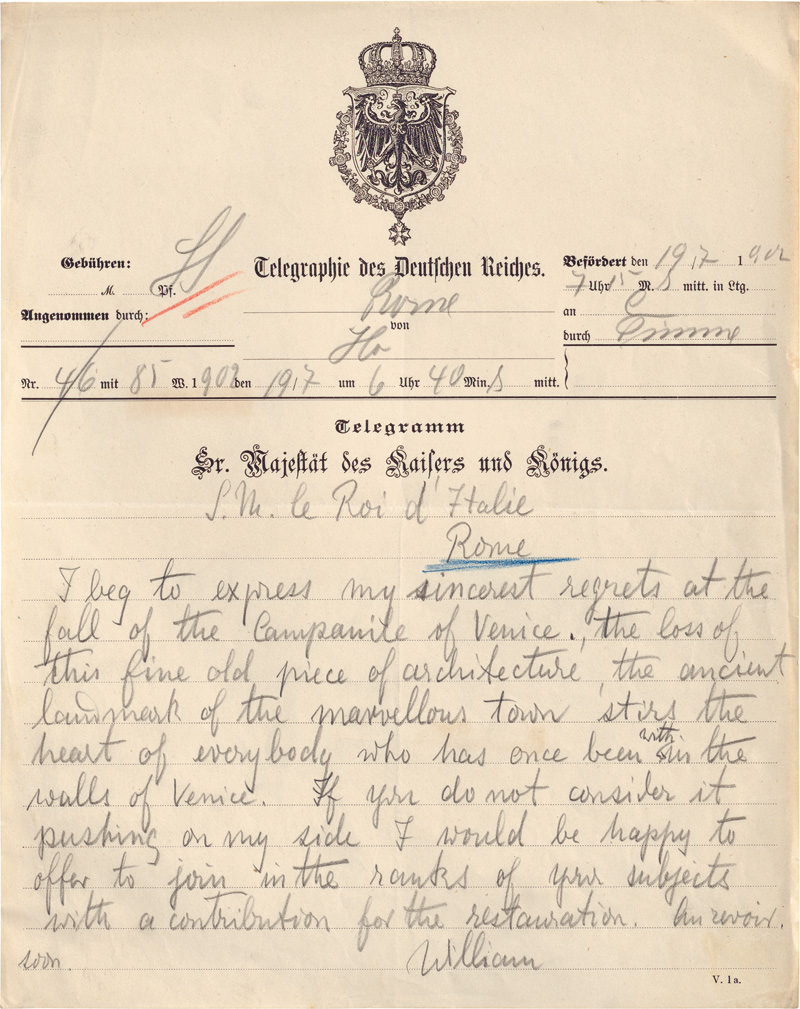 Gebühren:
M. Pf.
Angenommen durch:
Telegraphie des Deutschen Reiches.
Rome
von
Befördert den 19/7 1902
7 Uhr 15 M. S mitt. in Ltg.
an
durch Timme
Nr. 46 mit 85 W. 1902 den 19/7 um 6 Uhr 40 Min. S mitt.
Telegramm
Sr. Majestät des Kaisers und Königs.
S. M. le Roi d'Italie
Rome
I beg to express my sincerest regrets at the
fall of the Campanile of Venice., the loss of
this fine old piece of architecture, the ancient
landmark of the marvellous town stirs the
heart of everybody who has once been within the
walls of Venice. If you do not consider it
pushing on my side I would be happy to
offer to join in the ranks of your subjects
with a contribution for the restauration. Au revoir.
soon. William
V. 1a.